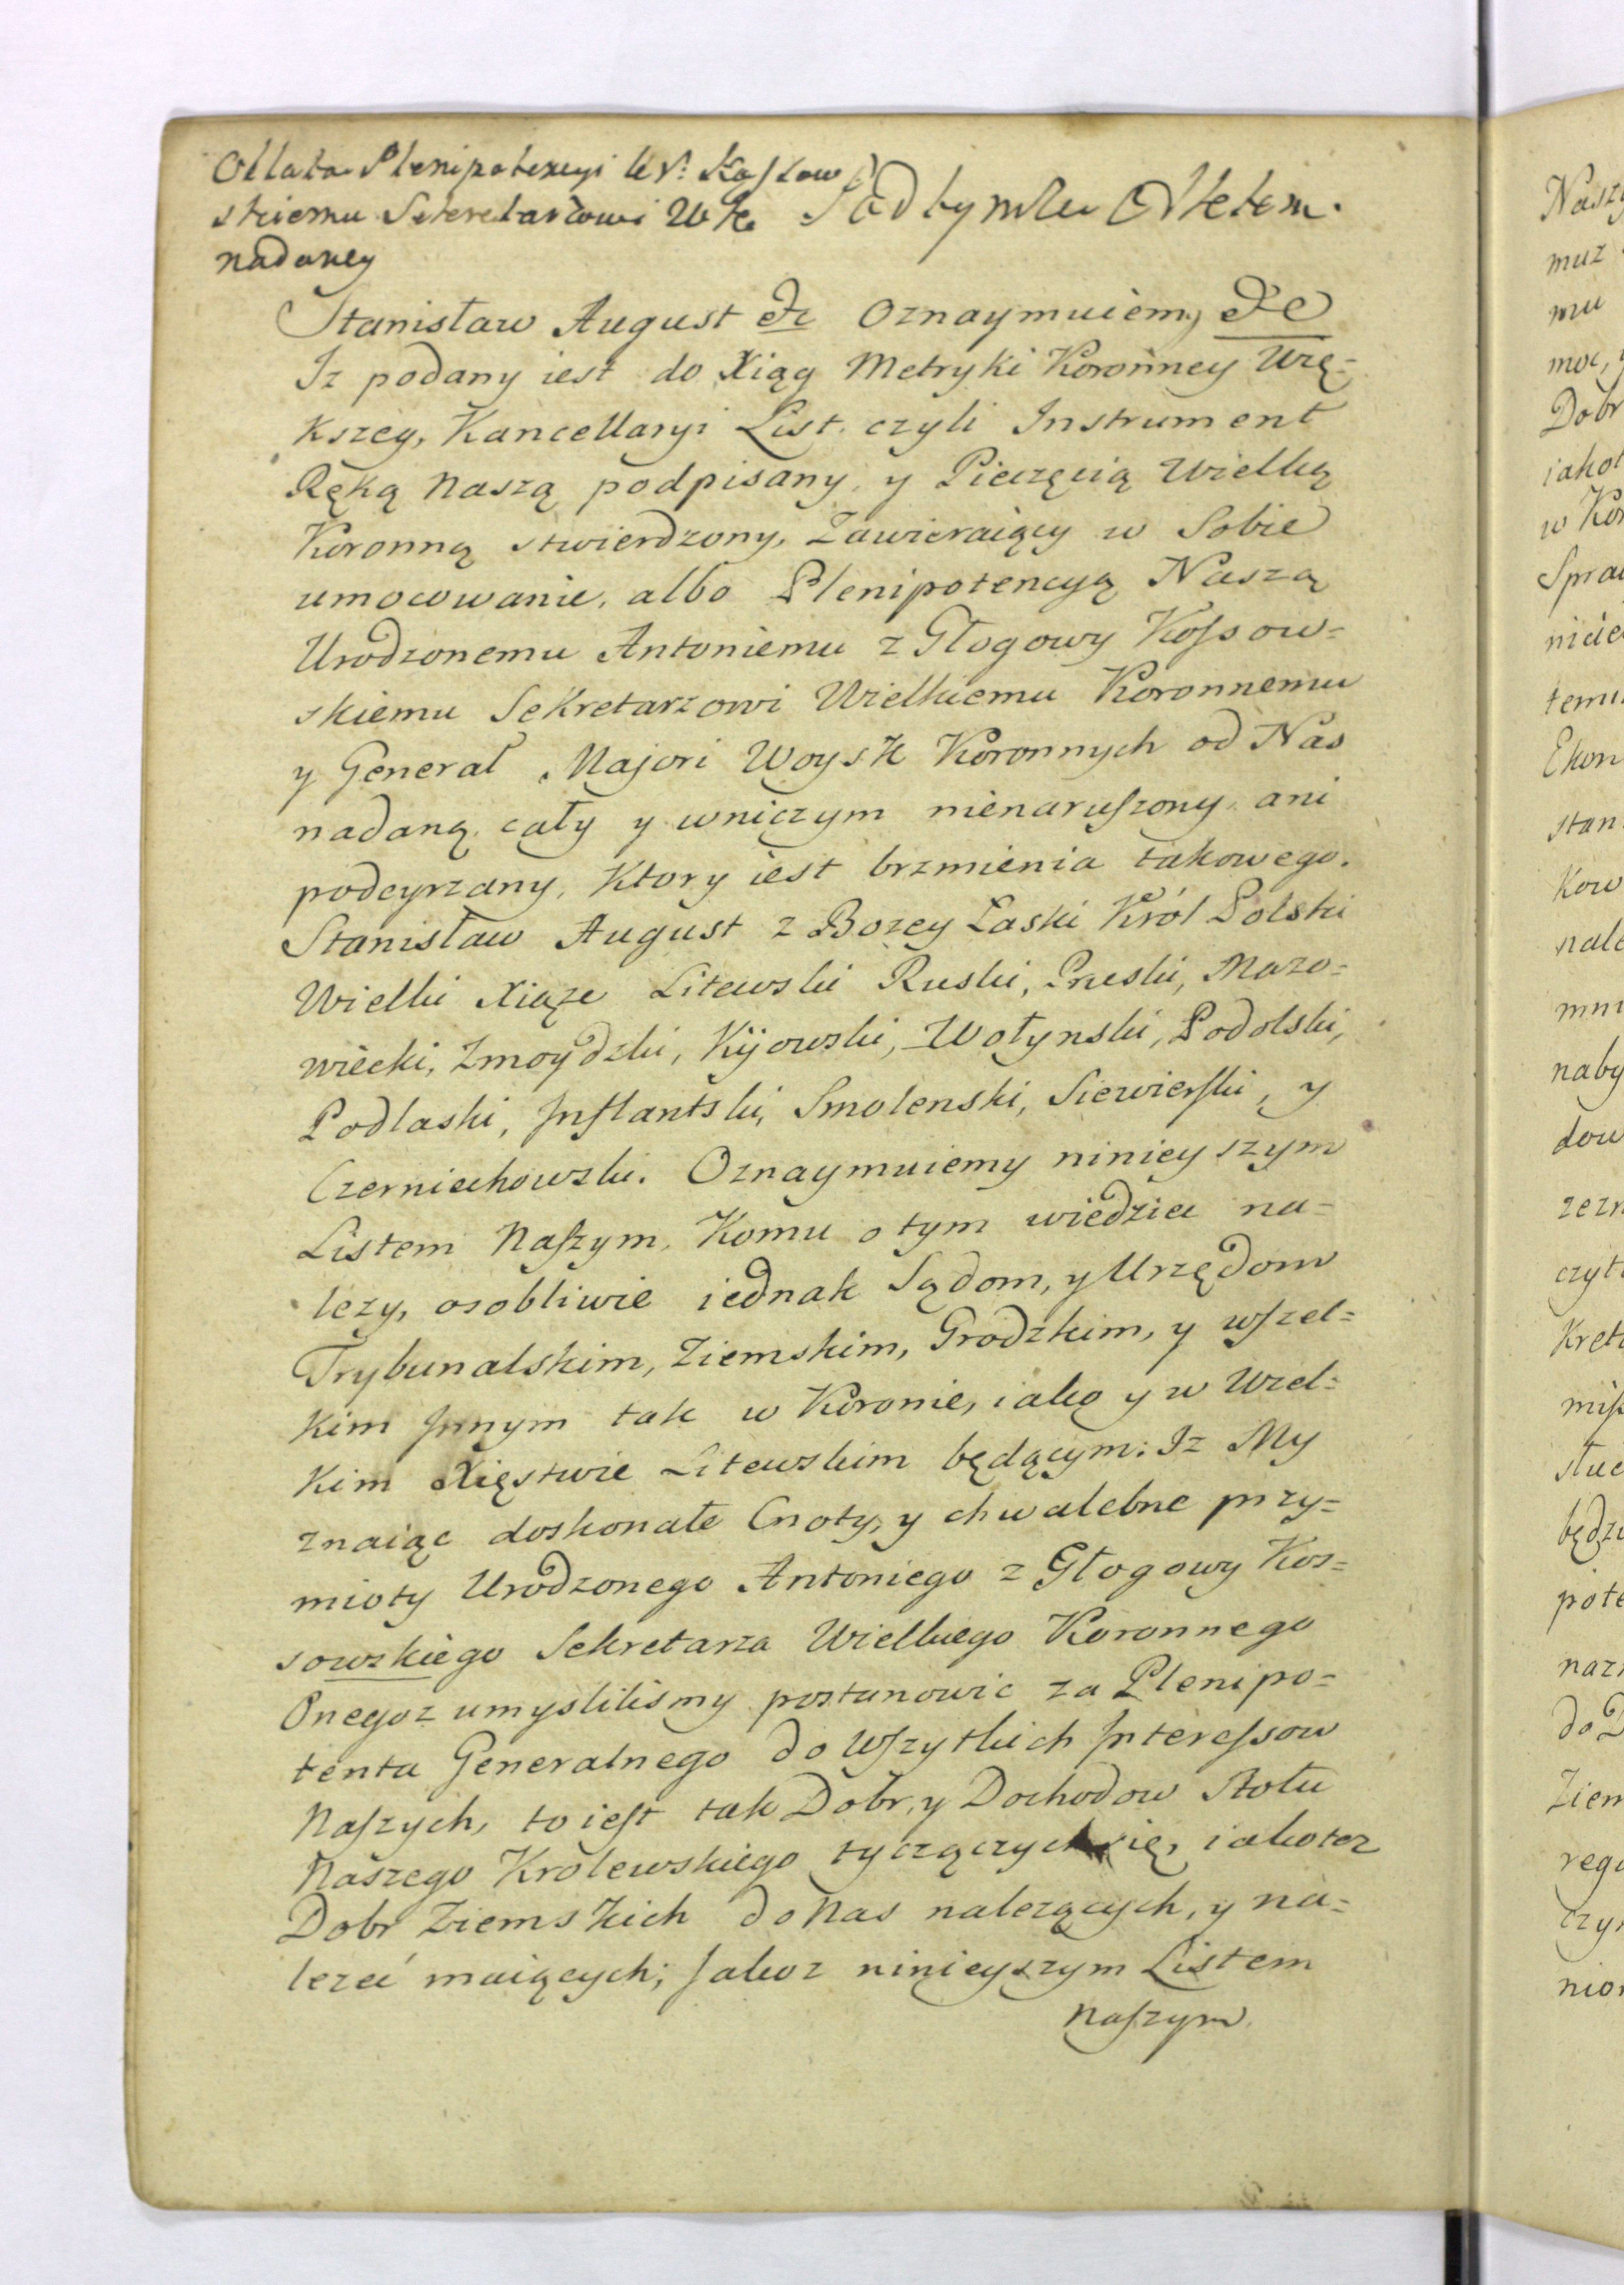 Oblata Plenipotencyi Ur: Kossow
skiemu Sekretarzowi WK.
nadaney
Pod tymże Aktem.
Stanisław August &c Oznaymuiemy &c
Iz podany iest do Xiąg Metryki Koronney Wię=
kszey, Kancellaryi List. czyli Instrument
Ręką Naszą podpisany, y Pieczęcią Wielką
Koronną stwierdzony, Zawieraiący w Sobie
umocowanie, albo Plenipotencyą Naszą
Urodzonemu Antoniemu z Głogowy Kossow=
skiemu Sekretarzowi Wielkiemu Koronnemu
y Generał Majori Woysk Koronnych od Nas
nadaną, cały y wniczym nienaruszony, ani
podeyrzany, Ktory iest brzmienia takowego.
Stanisław August z Bozey Łaski Król Polski
Wielki Xiąze Litewski Ruski, Pruski, Mazo=
wiecki, Zmoydzki, Kijowski, Wołynski, Podolski,
Podlaski, Inflantski, Smolenski, Siewierski, y
Czerniechowski. Oznaymuiemy ninieyszym
Listem Naszym, Komu o tym wiedziec na=
lezy, osobliwie iednak Sądom, y Urzędom
Trybunalskim, Ziemskim, Grodzkim, y wszel=
kim Innym tak w Koronie, iako y w Wiel=
kim Xięstwie Litewskim będącym: Iz My
znaiąc doskonałe Cnoty, y chwalebne przy=
mioty Urodzonego Antoniego z Głogowy Kos=
sowskiego Sekretarza Wielkiego Koronnego
Onegoz umyslilismy postanowic za Plenipo=
tenta Generalnego do Wszytkich Interessow
Naszych, to iest tak Dobr, y Dochodow Stołu
Naszego Królewskiego tyczączych się, iakotez
Dobr Ziemskich do Nas nalezących, y na=
lezeć maiących; Jakoz ninieyszym Listem
Naszym
Naszy
muz
mu
moc, y
Dobr
iakot
w Kor
Spraw
nicie
temu
Ekon
stan
kow
nale
mni
naby
dow
zezn
czyt
kret
będzi
pote
nazn
do D
Ziem
rega
czyn
nion